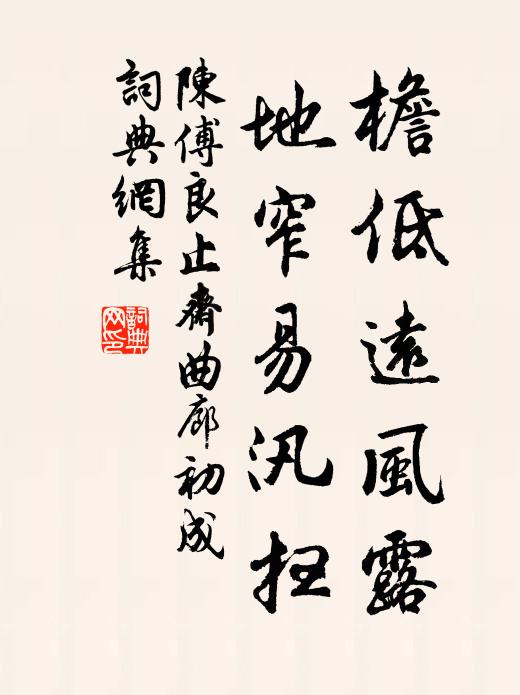 檐低遠風露
地窄易汛扫
陳傅良止齋曲廊初成
詞典網集
詞典网印